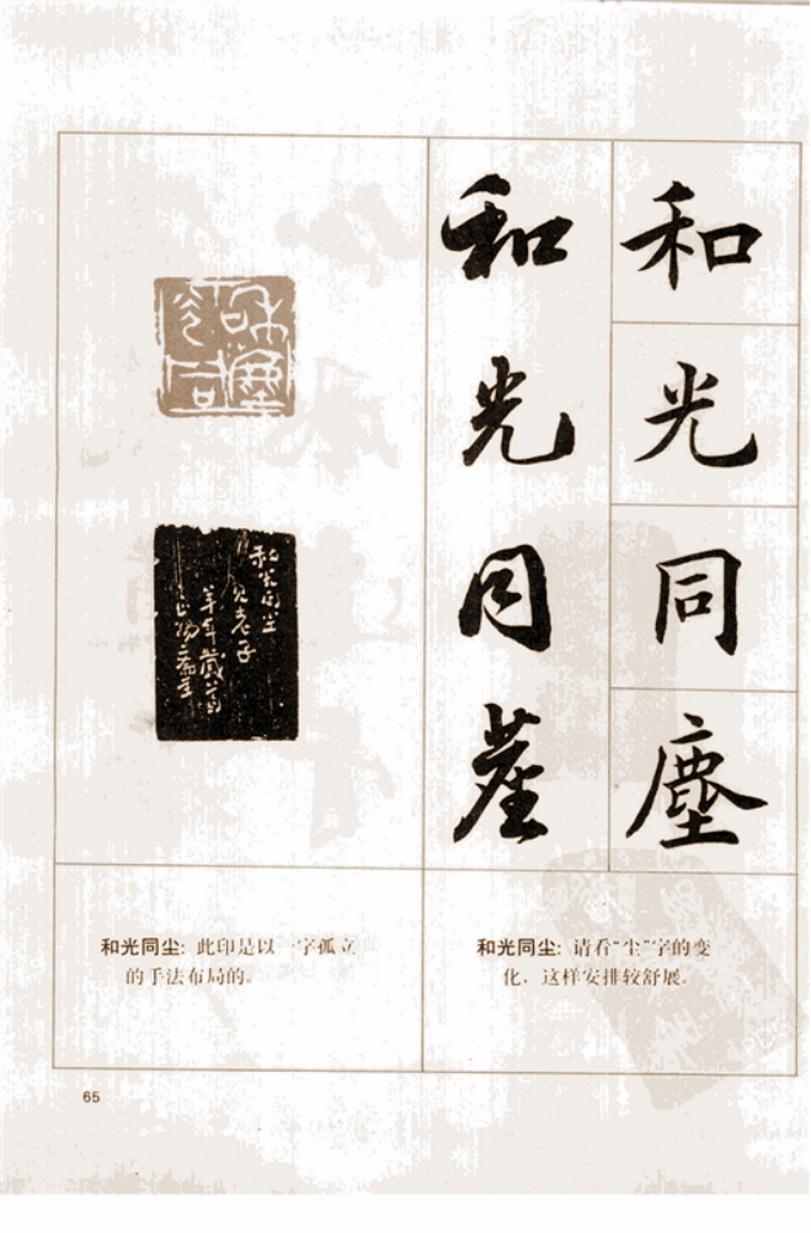 和光同塵
和光同塵
和光同尘
见老子
羊年岁首
和光同尘：请看“尘”字的变
化，这样安排较舒展。
和光同尘：此印是以一字孤立
的手法布局的。
65